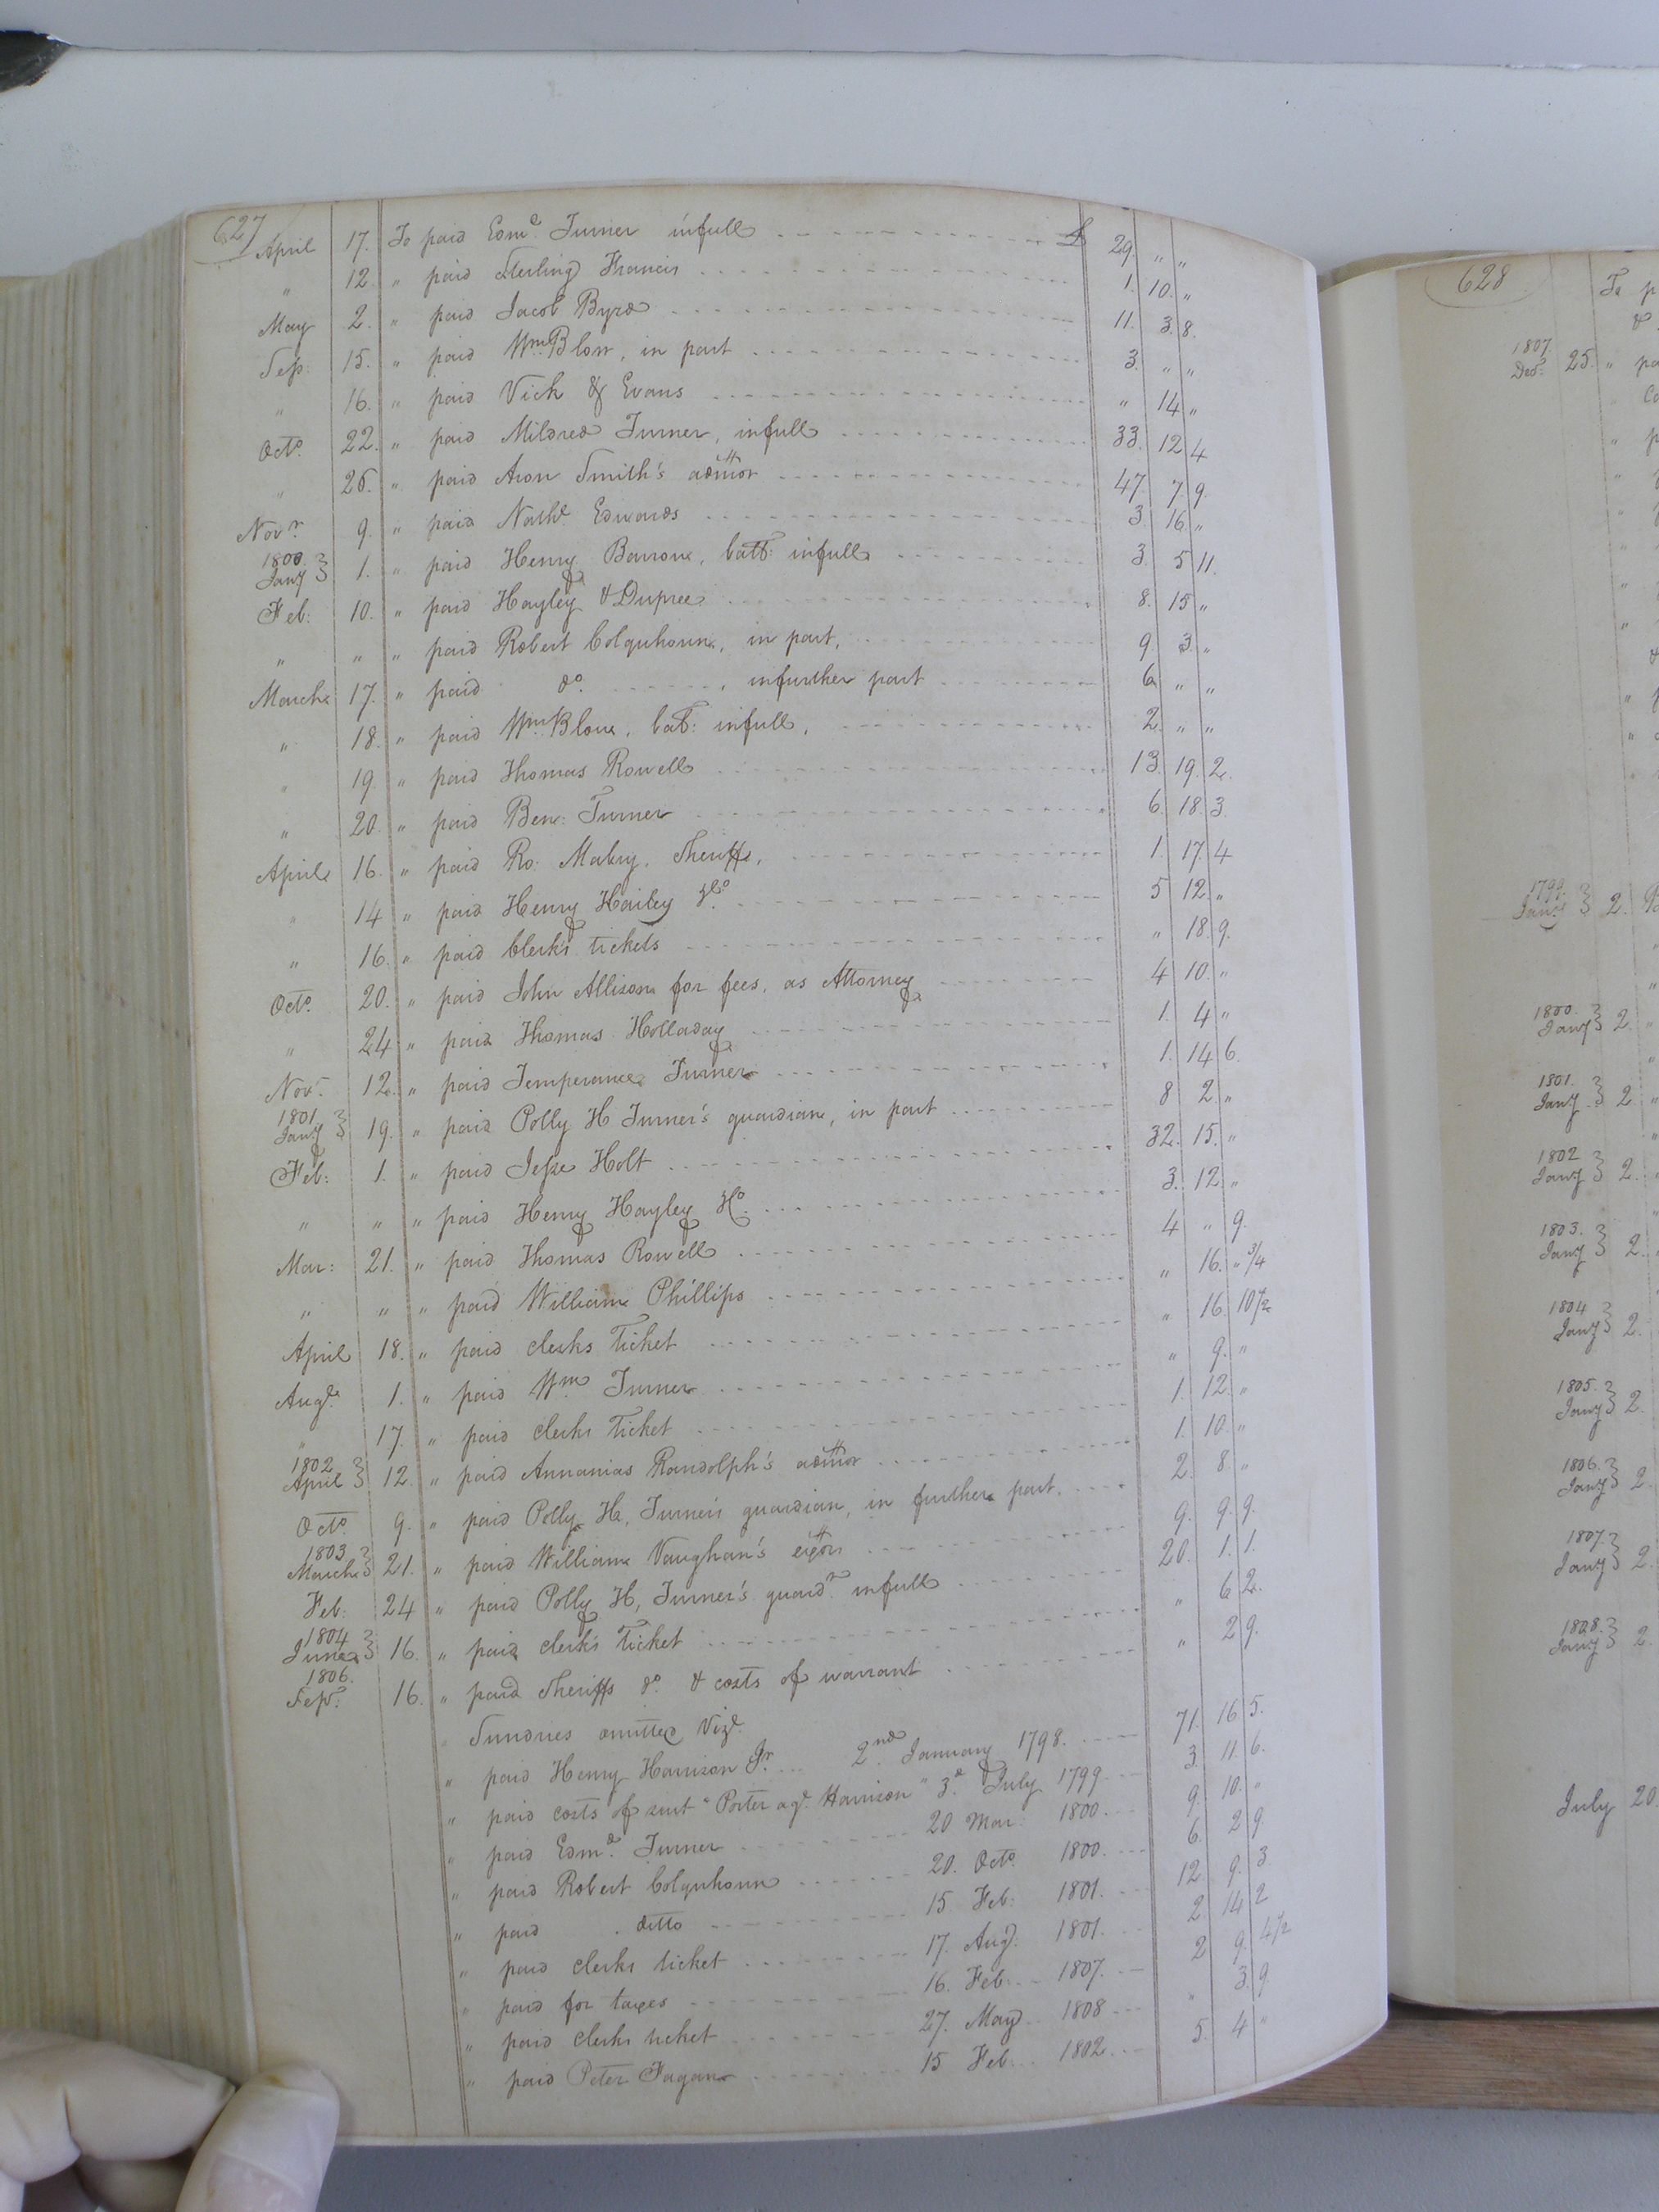 627
April 17. To paid Edmd. Turner infull £ 29 " "
" 12. " paid Sterling Francis 1. 10. "
May 2. " paid Jacob Byrd 11. 3. 8.
Sep: 15. " paid Wm. Blow, in part 3. " "
" 16. " paid Vick & Evans " 14 "
Octo. 22. " paid Mildred Turner, infull 33. 12 4
" 26. " paid Aron Smith's admor 47. 7. 9.
Novr. 9. " paid Nathl. Edwards 3. 16. "
1800. Jany 1. " paid Henry Barrow, ball: infull 3. 5 11.
Feb: 10. " paid Hayley & Dupree 8. 15 "
" " " paid Robert Colquhoun, in part, 9. 3. "
March 17. " paid do. , infurther part 6 " "
" 18. " paid Wm. Blow, bal: infull, 2. " "
" 19. " paid Thomas Rowell 13. 19. 2.
" 20. " paid Ben: Turner 6. 18. 3.
April 16. " paid Ro: Mabry, Sheriff, 1. 17. 4
" 14 " paid Henry Hailey 5 12. "
" 16. " paid Clerk's tickets " 18. 9.
Octo. 20. " paid John Allison for fees, as Attorney 4 10. "
" 24 " paid Thomas Holladay 1. 4 "
Nov. 12. " paid Temperance Turner 1. 14 6.
1801. Jany 19. " paid Polly H Turner's guardian, in part 8 2. "
Feb: 1. " paid Jesse Holt 32. 15. "
" " " paid Henry Hayley 3. 12. "
Mar: 21. " paid Thomas Rowell 4 " 9.
" " " paid William Phillips " 16. " 3/4
April 18. " paid clerks Ticket " 16. 10 1/2
Augt. 1. " paid Wm. Turner " 9. "
" 17. " paid clerks Ticket 1. 12. "
1802 April 12. " paid Annanias Randolph's admor 1. 10. "
Octo. 9. " paid Polly H. Turner's guardian, in further part. 2. 8. "
1803 March 21. " paid William Vaughan's exors 9. 9. 9.
Feb: 24 " paid Polly H, Turner's guardn. infull 20. 1. 1.
1804 June 16. " paid clerk's Ticket " 6 2.
1806. Sepr. 16. " paid Sheriffs do. & costs of warrant " 2 9.
" Sundries omitted Vizt.
" paid Henry Harrison Jr. 2nd January 1798. 71. 16 5.
" paid costs of suit "Porter agt. Harrison" 3d. July 1799. 3. 11. 6.
" paid Edmd. Turner 20 Mar: 1800. 9. 10. "
" paid Robert Colquhoun 20. Octo. 1800. 6. 2 9.
" paid ditto 15 Feb: 1801. 12 9. 3
" paid clerks ticket 17. Aug. 1801. 2 14 2
" paid for taxes 16. Feb: 1807. 2 9. 4 1/2
" paid clerks ticket 27. May 1808 " 3. 9.
" paid Peter Fagan 15 Feb: 1802. 5. 4 "
628
To p
1807. Decr. 25. " pa
1799. Jany 2.
1800. Jany 2. "
1801. Jany 2. "
1802 Jany 2.
1803. Jany 2.
1804 Jany 2.
1805. Jany 2.
1806. Jany 2.
1807. Jany 2.
1808. Jany 2.
July 20.